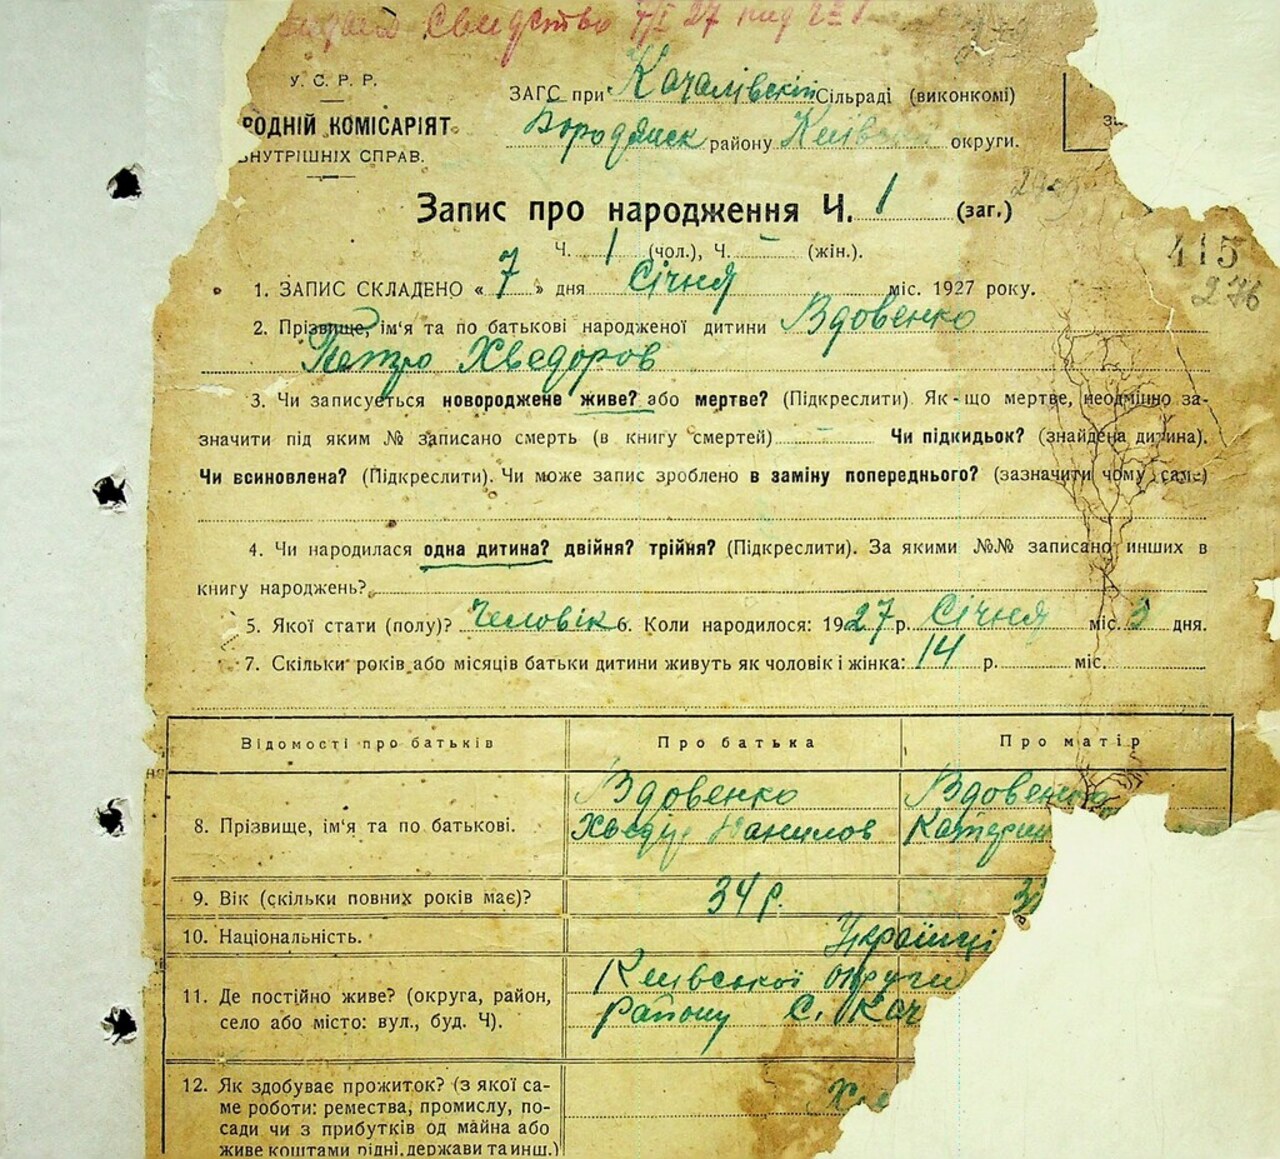 Свидство 7/I 27
У. С. Р. Р.
РОДНІЙ КОМІСАРІЯТ
ВНУТРІШНІХ СПРАВ.
ЗАГС при Качалівській Сільраді (виконкомі)
Бородянск району Київ округи.
Запис про народження Ч. 1 (заг.)
Ч. 1 (чол.), Ч. – (жін.).
415
276
1. ЗАПИС СКЛАДЕНО « 7 » дня Січня міс. 1927 року.
2. Прізвище, ім'я та по батькові народженої дитини Вдовенко
Петро Хведоров
3. Чи записується новороджене живе? або мертве? (Підкреслити). Як-що мертве, неодмінно за-
значити під яким № записано смерть (в книгу смертей) – Чи підкидьок? (знайдена дитина).
Чи всиновлена? (Підкреслити). Чи може запис зроблено в заміну попереднього? (зазначити чому саме)
4. Чи народилася одна дитина? двійня? трійня? (Підкреслити). За якими №№ записано инших в
книгу народжень?
5. Якої стати (полу)? Человік 6. Коли народилося: 1927 р. Січня міс. 3 дня.
7. Скільки років або місяців батьки дитини живуть як чоловік і жінка: 14 р. міс.
Відомості про батьків Про батька Про матір
8. Прізвище, ім'я та по батькові. Вдовенко Хведір Данилов Вдовенко Катерин
9. Вік (скільки повних років має)? 34 р.
10. Національність. Українці
11. Де постійно живе? (округа, район, Київської округи
село або місто: вул., буд. Ч). району С. Кач
12. Як здобуває прожиток? (з якої са-
ме роботи: ремества, промислу, по-
сади чи з прибутків од майна або
живе коштами рідні, держави та инш.)